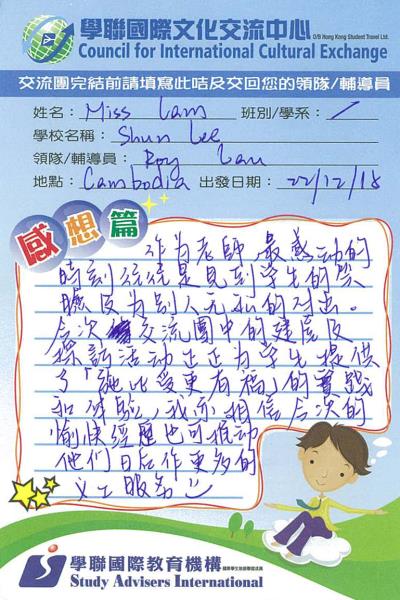 學聯國際文化交流中心
O/B Hong Kong Student Travel Ltd.
Council for International Cultural Exchange
交流團完結前請填寫此咭及交回您的領隊/輔導員
姓名：Miss Lam 班別/學系：/
學校名稱：Shun Lee
領隊/輔導員：Roy Lau
地點：Cambodia 出發日期：22/12/18
感想篇
作為老師，最感动的
時刻往往是見到學生的笑
臉及為別人无私的对出。
今次交流團中的建屋及
探訪活动正正为学生提供
了「施比受更有福」的實踐
和体驗，我亦相信今次的
愉快經歷也可推动
他们日后作更多的
义工服务
學聯國際教育機構
Study Advisers International